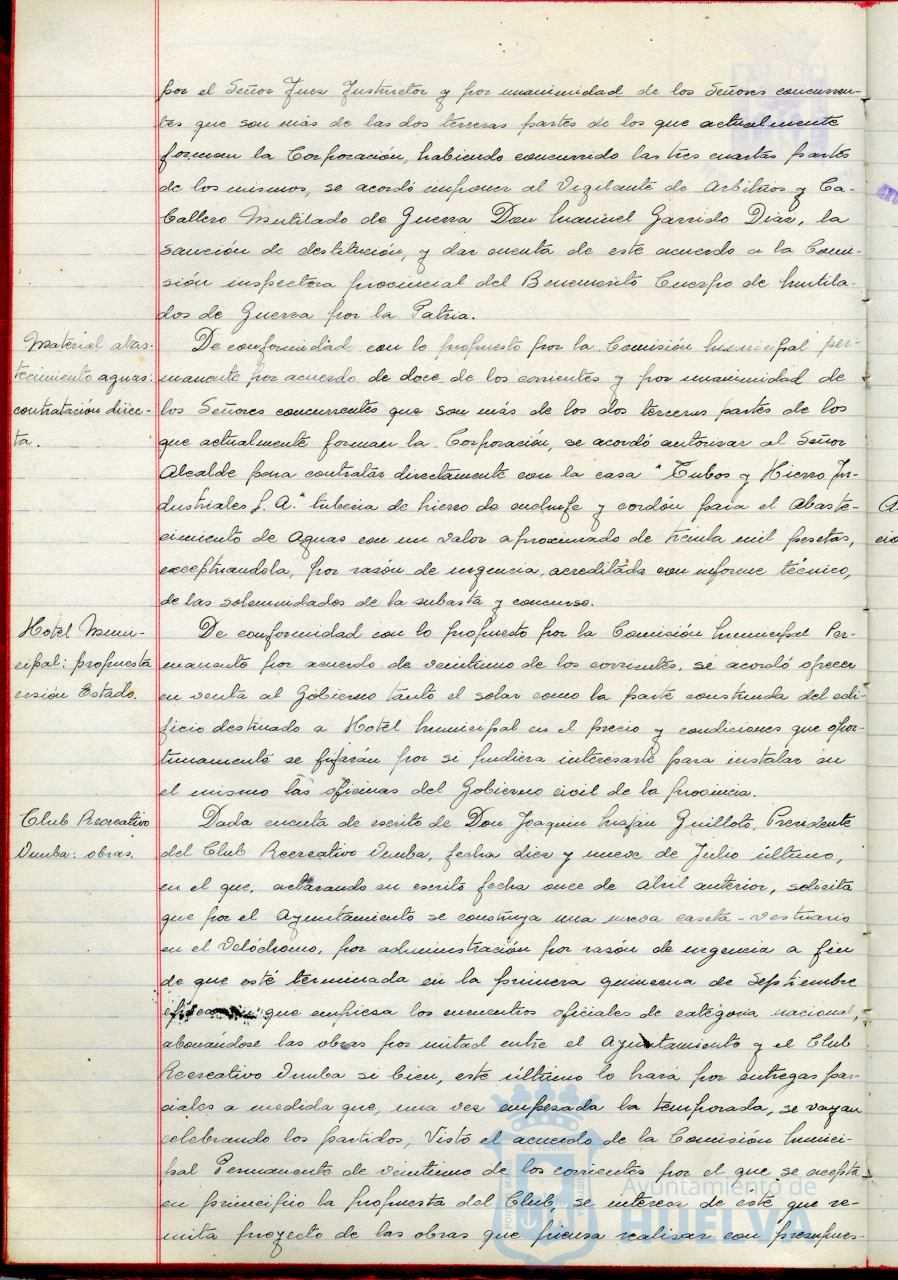 por el Señor Juez Instructor y por unanimidad de los Señores concurren-
tes que son más de las dos terceras partes de los que actualmente
forman la Corporación, habiendo concurrido las tres cuartas partes
de los mismos, se acordó imponer al Vigilante de Arbitrios y Ca-
ballero Mutilado de Guerra Don Manuel Garrido Diaz, la
sanción de destitución, y dar cuenta de este acuerdo a la Comi-
sión inspectora provincial del Benemérito Cuerpo de Mutila-
dos de Guerra por la Patria.
Material abas-
tecimiento aguas:
contratación direc-
ta.
De conformidad con lo propuesto por la Comisión Municipal per-
manente por acuerdo de doce de los corrientes y por unanimidad de
los Señores concurrentes que son más de los dos terceras partes de los
que actualmente forman la Corporación, se acordó autorizar al Señor
Alcalde para contratar directamente con la casa "Tubos y Hierro In-
dustriales S. A." tuberia de hierro de enchufe y cordón para el abaste-
cimiento de Aguas con un valor aproximado de treinta mil pesetas,
exceptuandola, por razón de urgencia, acreditada con informe técnico,
de las solemnidades de la subasta y concurso.
Hotel Muni-
cipal: propuesta
cesión Estado.
De conformidad con lo propuesto por la Comisión Municipal Per-
manente por acuerdo de veintiuno de los corrientes, se acordó ofrecer
en venta al Gobierno tanto el solar como la parte construida del edi-
ficio destinado a Hotel Municipal en el precio y condiciones que opor-
tunamente se fijarán por si pudiera interesarle para instalar en
el mismo las oficinas del Gobierno civil de la provincia.
Club Recreativo
Onuba: obras.
Dada cuenta de escrito de Don Joaquin Guilloto, Presidente
del Club Recreativo Onuba, fecha diez y nueve de Julio último,
en el que, aclarando su escrito fecha once de Abril anterior, solicita
que por el Ayuntamiento se construya una nueva caseta-vestuario
en el Velódromo, por administración por razón de urgencia a fin
de que esté terminada en la primera quincena de Septiembre
que empieza los encuentros oficiales de categoria nacional,
abonándose las obras por mitad entre el Ayuntamiento y el Club
Recreativo Onuba si bien, este último lo hará por entregas par-
ciales a medida que, una vez empezada la temporada, se vayan
celebrando los partidos; Visto el acuerdo de la Comisión Munici-
pal Permanente de veintiuno de los corrientes por el que se acepta
en principio la propuesta del Club, se interesa de éste que re-
mita proyecto de las obras que piensa realizar con presupues-
Ayuntamiento de
HUELVA